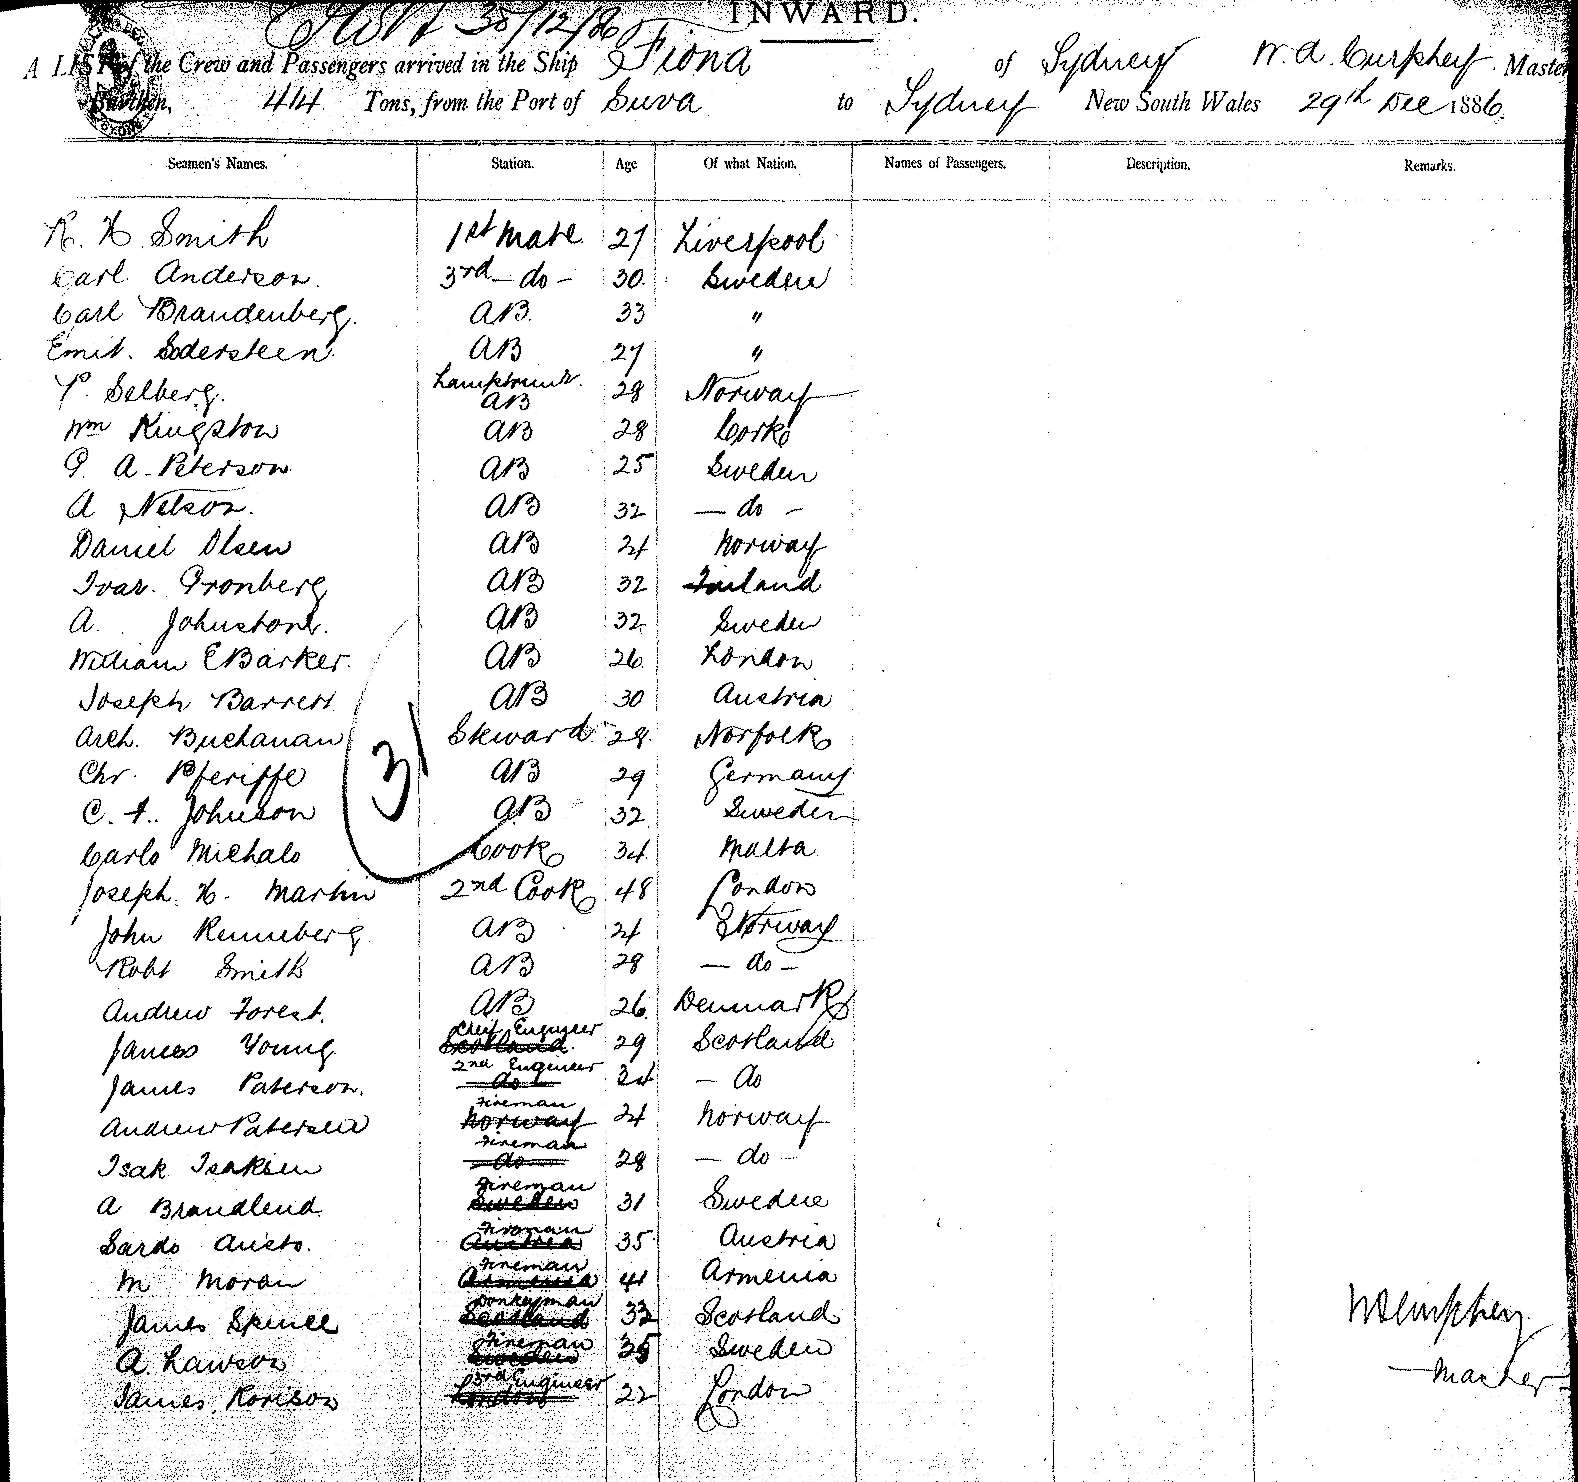 30/12/86
INWARD.
A LIST of the Crew and Passengers arrived in the Ship Fiona of Sydney W. A. Curphey. Master
Burthen, 414 Tons, from the Port of Suva to Sydney New South Wales 29th Dec 1886.
Seamen's Names. Station. Age Of what Nation. Names of Passengers. Description. Remarks.
R. H. Smith 1st Mate 27 Liverpool
Carl Anderson. 3rd - do - 30. Sweden
Carl Brandenberg. AB. 33 "
Emil. Sodersteen. AB 27 "
P. Selberg. Lamptrimr. AB 28 Norway
Wm Kingston AB 28 Cork
P. A. Peterson AB 25 Sweden
A Nelson. AB 32 - do -
Daniel Olsen AB 24 Norway
Ivar. Gronberg AB 32 Finland
A. Johnstone. AB 32 Sweden
William E Barker. AB 26 London
Joseph Barrett AB 30 Austria
Arch. Buchanan Steward 28 Norfolk
Chr. Pferiffe AB 29 Germany
C. A. Johnson AB 32 Sweden
31
Carlo Michalo Cook 34 Malta
Joseph. H. Martin 2nd Cook 48 London
John Renneberg AB 24 Norway
Robt Smith AB 28 - do -
Andrew Forest. AB 26 Denmark
James Young Chief Engineer Scotland 29 Scotland
James Paterson. 2nd Engineer do 34 - do
Andrew Petersen Fireman Norway 24 Norway
Isak Isaksen Fireman do 28 - do -
A Brandlend Fireman Sweden 31 Sweden
Sardo Aristo. Fireman Austria 35 Austria
M Moran Fireman Armenia 41 Armenia
James Spence Donkeyman Scotland 33 Scotland
A. Lawson Fireman Sweden 35 Sweden
James Rorison 3rd Engineer London 22 London
WA Curphey
Master